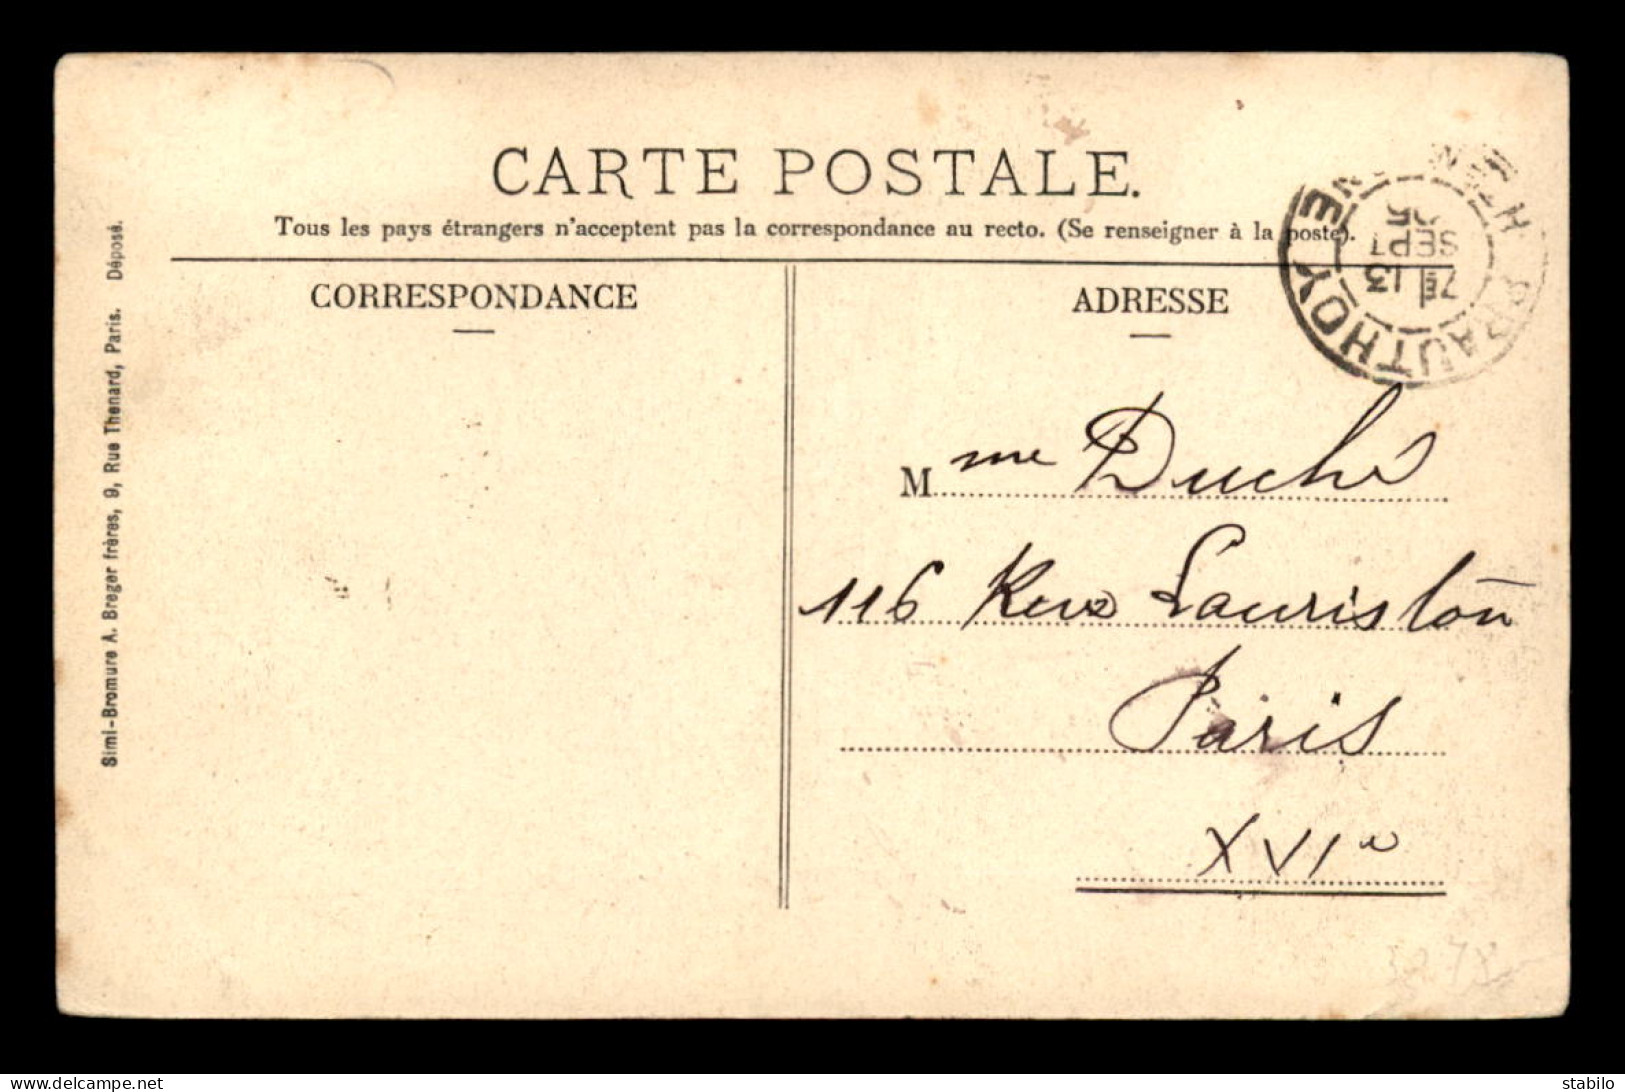 CARTE POSTALE.
Tous les pays étrangers n'acceptent pas la correspondance au recto. (Se renseigner à la poste).
CORRESPONDANCE
ADRESSE
PRAUTHOY
13
SEPT
05
Mme Duché
116 Rue Lauriston
Paris
XVIe
Simi-Bromure A. Breger frères, 9, Rue Thenard, Paris. Déposé.
delcampe.net
stabilo